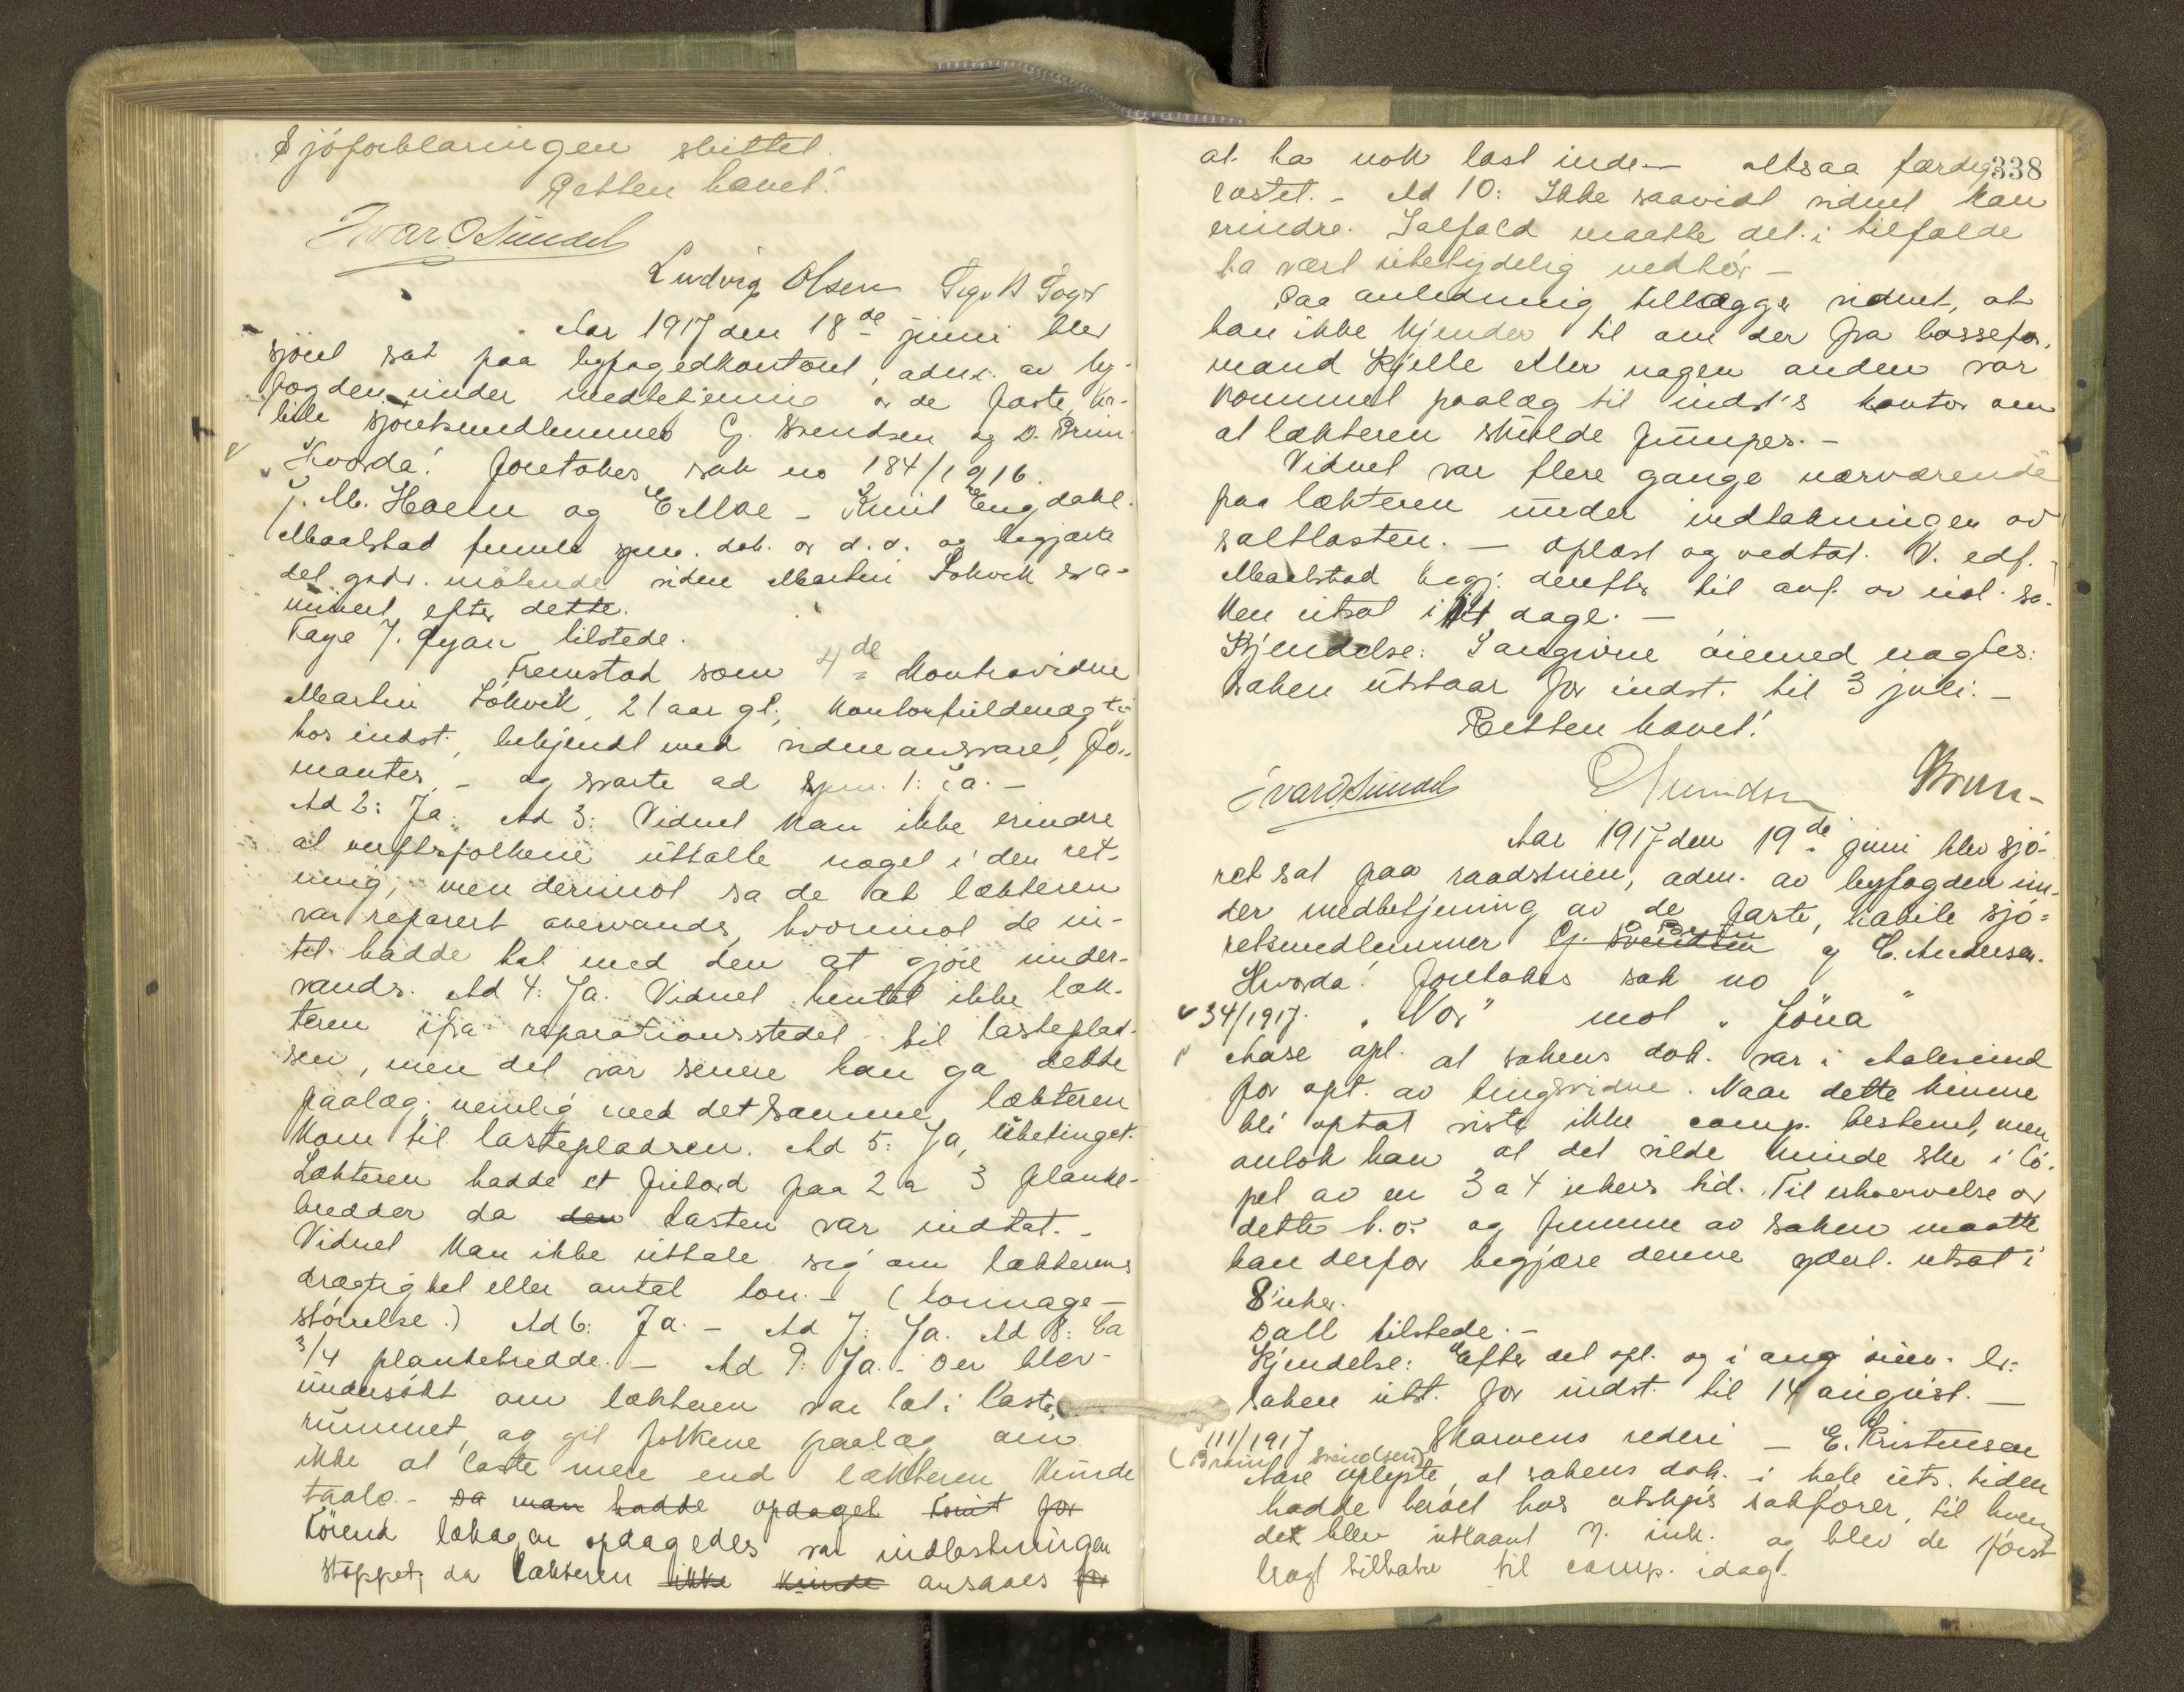 Sjøforklaringen sluttet.
Retten hævet.
Ivar O Sundet
Ludvig Olsen
Aar 1917 den 18de juni blev
sjøret sat paa byfogedkontoret, adm. av by-
fogden under medbetjening av de faste, ha-
bile sjøretsmedlemmer G. Svendsen og D. Bruun
Hvorda! foretokes sak no 184/1916.
J. M. Hoem og - Knut Engdahl.
Maalstad fremla spm. dok. av d.d. og begjærte
det godv. møtende vidne Martin Løkvik exa-
mineret efter dette.
Faye f. Ryan tilstede.
Fremstod som 4de kontravidne
Martin Løkvik, 21 aar gl., kontorfuldmægtig
hos indst., bekjendt med vidneansvaret, for-
mantes, - og svarte ad spm. 1: Ja. -
Ad 2: Ja. Ad 3: Vidnet kan ikke erindre
at verftsfolkene uttalte noget i den ret-
ning, men derimot sa de at lækteren
var reparert overvands, hvorimot de in-
tet hadde hat med den at gjøre under-
vands. Ad 4: Ja. Vidnet hentet ikke læk-
teren ifra reparationsstedet til lasteplad-
sen, men det var senere han ga dette
paalæg, nemlig med det samme lækteren
kom til lastepladsen. Ad 5: Ja, ubetinget.
Lækteren hadde et fribord paa 2 a 3 planke-
bredder da den lasten var indtat. -
Vidnet kan ikke uttale sig om lækterens
drægtighet eller antal ton. - (tonnage-
størrelse.) Ad 6: Ja. - Ad 7: Ja. Ad 8: Ca
3/4 plankebredde. - Ad 9: Ja. - Der blev
undersøkt om lækteren var læt i laste-
rummet, og git folkene paalæg om
ikke at laste mere end lækteren kunde
taale. - Da man hadde opdaget for
lækagen opdagedes var indlastningen
stoppet, da lækteren ikke kunde ansaaes for
338
at ha nok last inde - altsaa færdig-
lastet. - Ad 10: Ikke saavidt vidnet kan
erindre. Ialfald maatte det i tilfælde
ha vært ubetydelig nedbør -
Paa anledning tillægger vidnet, at
han ikke kjender til om der fra bassefor-
mand Kjelle eller nogen anden var
kommet paalæg til indst's kontor om
at lækteren skulde pumpes. -
Vidnet var flere gange nærværende
paa lækteren under indtakningen av
saltlasten. - Oplæst og vedtat. V. edf.
Maalstad begj. derefter til avf. av sa-
ken utsat i 14 dage. -
Kjendelse: I angivne øiemed eragtes:
Saken utstaar for indst. til 3 juli. -
Retten hævet!
Ivar O Sundet G Svendsen Bruun -
Aar 1917 den 19de juni blev sjø-
ret sat paa raadstuen, adm. av byfogden un-
der medbetjening av de faste, habile sjø-
retsmedlemmer G. Svendsen D. Bruun og C. Andersen.
Hvorda! foretokes sak no
34/1917. "Vor" mot "Jöna"
Aase opl. at sakens dok. var i Aalesund
for opt. av tingsvidne. Naar dette kunne
bli optat viste ikke comp. bestemt, men
antok han at det vilde kunde ske i lø-
pet av en 3 a 4 ukers tid. Til erhvervelse av
dette t.v. og fremme av saken maatte
han derfor begjære denne yderl. utsat i
8 uker.
Dall tilstede. -
Kjendelse: Efter det opl. og i ang øiem. er.:
Saken utst. for indst. til 14 august. -
111/1917 Skarvens rederi - E. Kristensen
(Bruun Svendsen)
Aase oplyste, at sakens dok. i hele uts. tiden
hadde beroet hos utskj's sakfører, til hvem
det blev utlaant og blev de først
bragt tilbake til comp. idag.